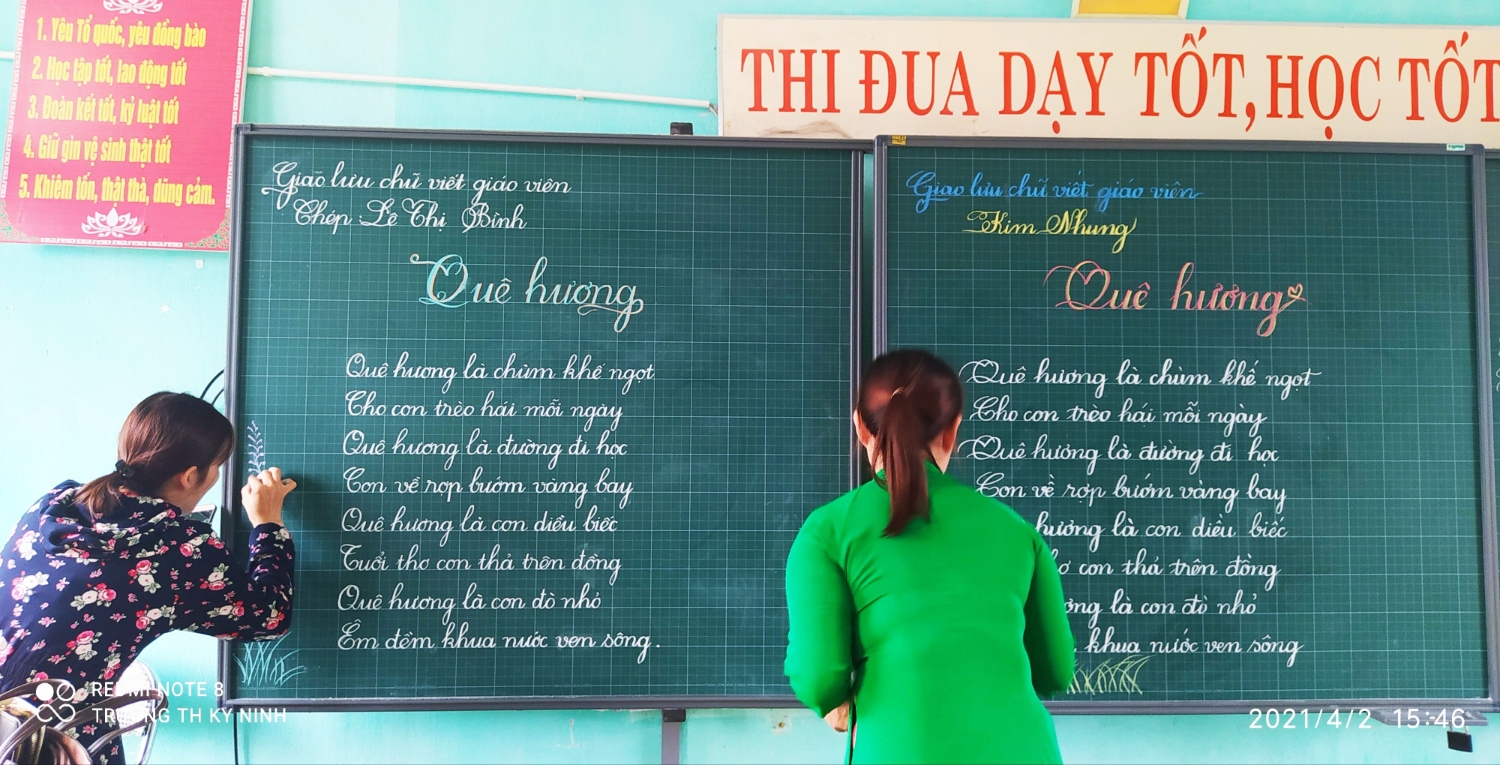 1. Yêu Tổ quốc, yêu đồng bào
2. Học tập tốt, lao động tốt
3. Đoàn kết tốt, kỷ luật tốt
4. Giữ gìn vệ sinh thật tốt
5. Khiêm tốn, thật thà, dũng cảm.
THI ĐUA DẠY TỐT, HỌC TỐT
Giao lưu chữ viết giáo viên
Chép Lê Thị Bình
Quê hương
Quê hương là chùm khế ngọt
Cho con trèo hái mỗi ngày
Quê hương là đường đi học
Con về rợp bướm vàng bay
Quê hương là con diều biếc
Tuổi thơ con thả trên đồng
Quê hương là con đò nhỏ
Êm đềm khua nước ven sông.
Giao lưu chữ viết giáo viên
Kim Nhung
Quê hương
Quê hương là chùm khế ngọt
Cho con trèo hái mỗi ngày
Quê hương là đường đi học
Con về rợp bướm vàng bay
hương là con diều biếc
con thả trên đồng
là con đò nhỏ
khua nước ven sông
REDMI NOTE 8
TRƯỜNG TH KỲ NINH
2021/4/2 15:46